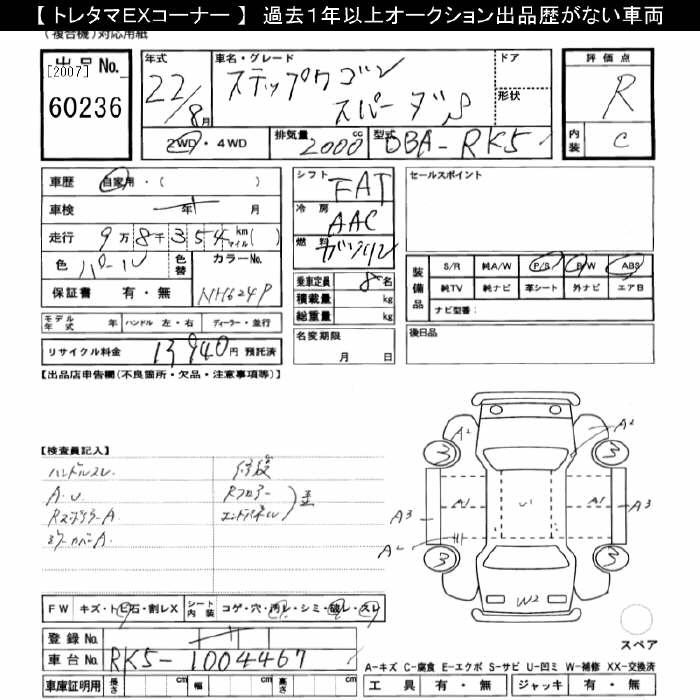 【 トレタマEXコーナー 】 過去1年以上オークション出品歴がない車両
(複合機)対応用紙
出品No. [2007] 60236
年式 22/8月
車名・グレード ステップワゴン スパーダS
ドア
形状
評価点 R
内装 C
2WD・4WD
排気量 2000cc
型式 DBA-RK5
車歴 自家用・( )
車検 年 月
走行 9万8千354km マイル( )
色 パール
色替
カラーNo. NH624P
保証書 有・無
シフト FAT
冷房 AAC
燃料 ガソリン
乗車定員 8名
積載量 kg
総重量 kg
セールスポイント
装備品 S/R 純A/W P/S P/W ABS
純TV 純ナビ 革シート 外ナビ エアB
ナビ型番:
モデル年式 年 ハンドル 左・右 ディーラー・並行
名変期限 月 日
後日品
リサイクル料金 13940円 預託済
【出品店申告欄(不良箇所・欠品・注意事項等)】
【検査員記入】
ハンドルスレ
A.U
Rスポイラー A
ミラーカバー A
修復
Rフロアー
エンドパネル
A2
A2
3
3
A3
A1
U1
A1
A3
A2
3
3
W2
FW キズ・トビ石・割レX
シート内装 コゲ・穴・汚レ・シミ・破レ・スレ
登録No.
車台No. RK5-1004467
車庫証明用 長さ cm 幅 cm 高さ cm
スペア
A-キズ C-腐食 E-エクボ S-サビ U-凹ミ W-補修 XX-交換済
工具 有・無 ジャッキ 有・無